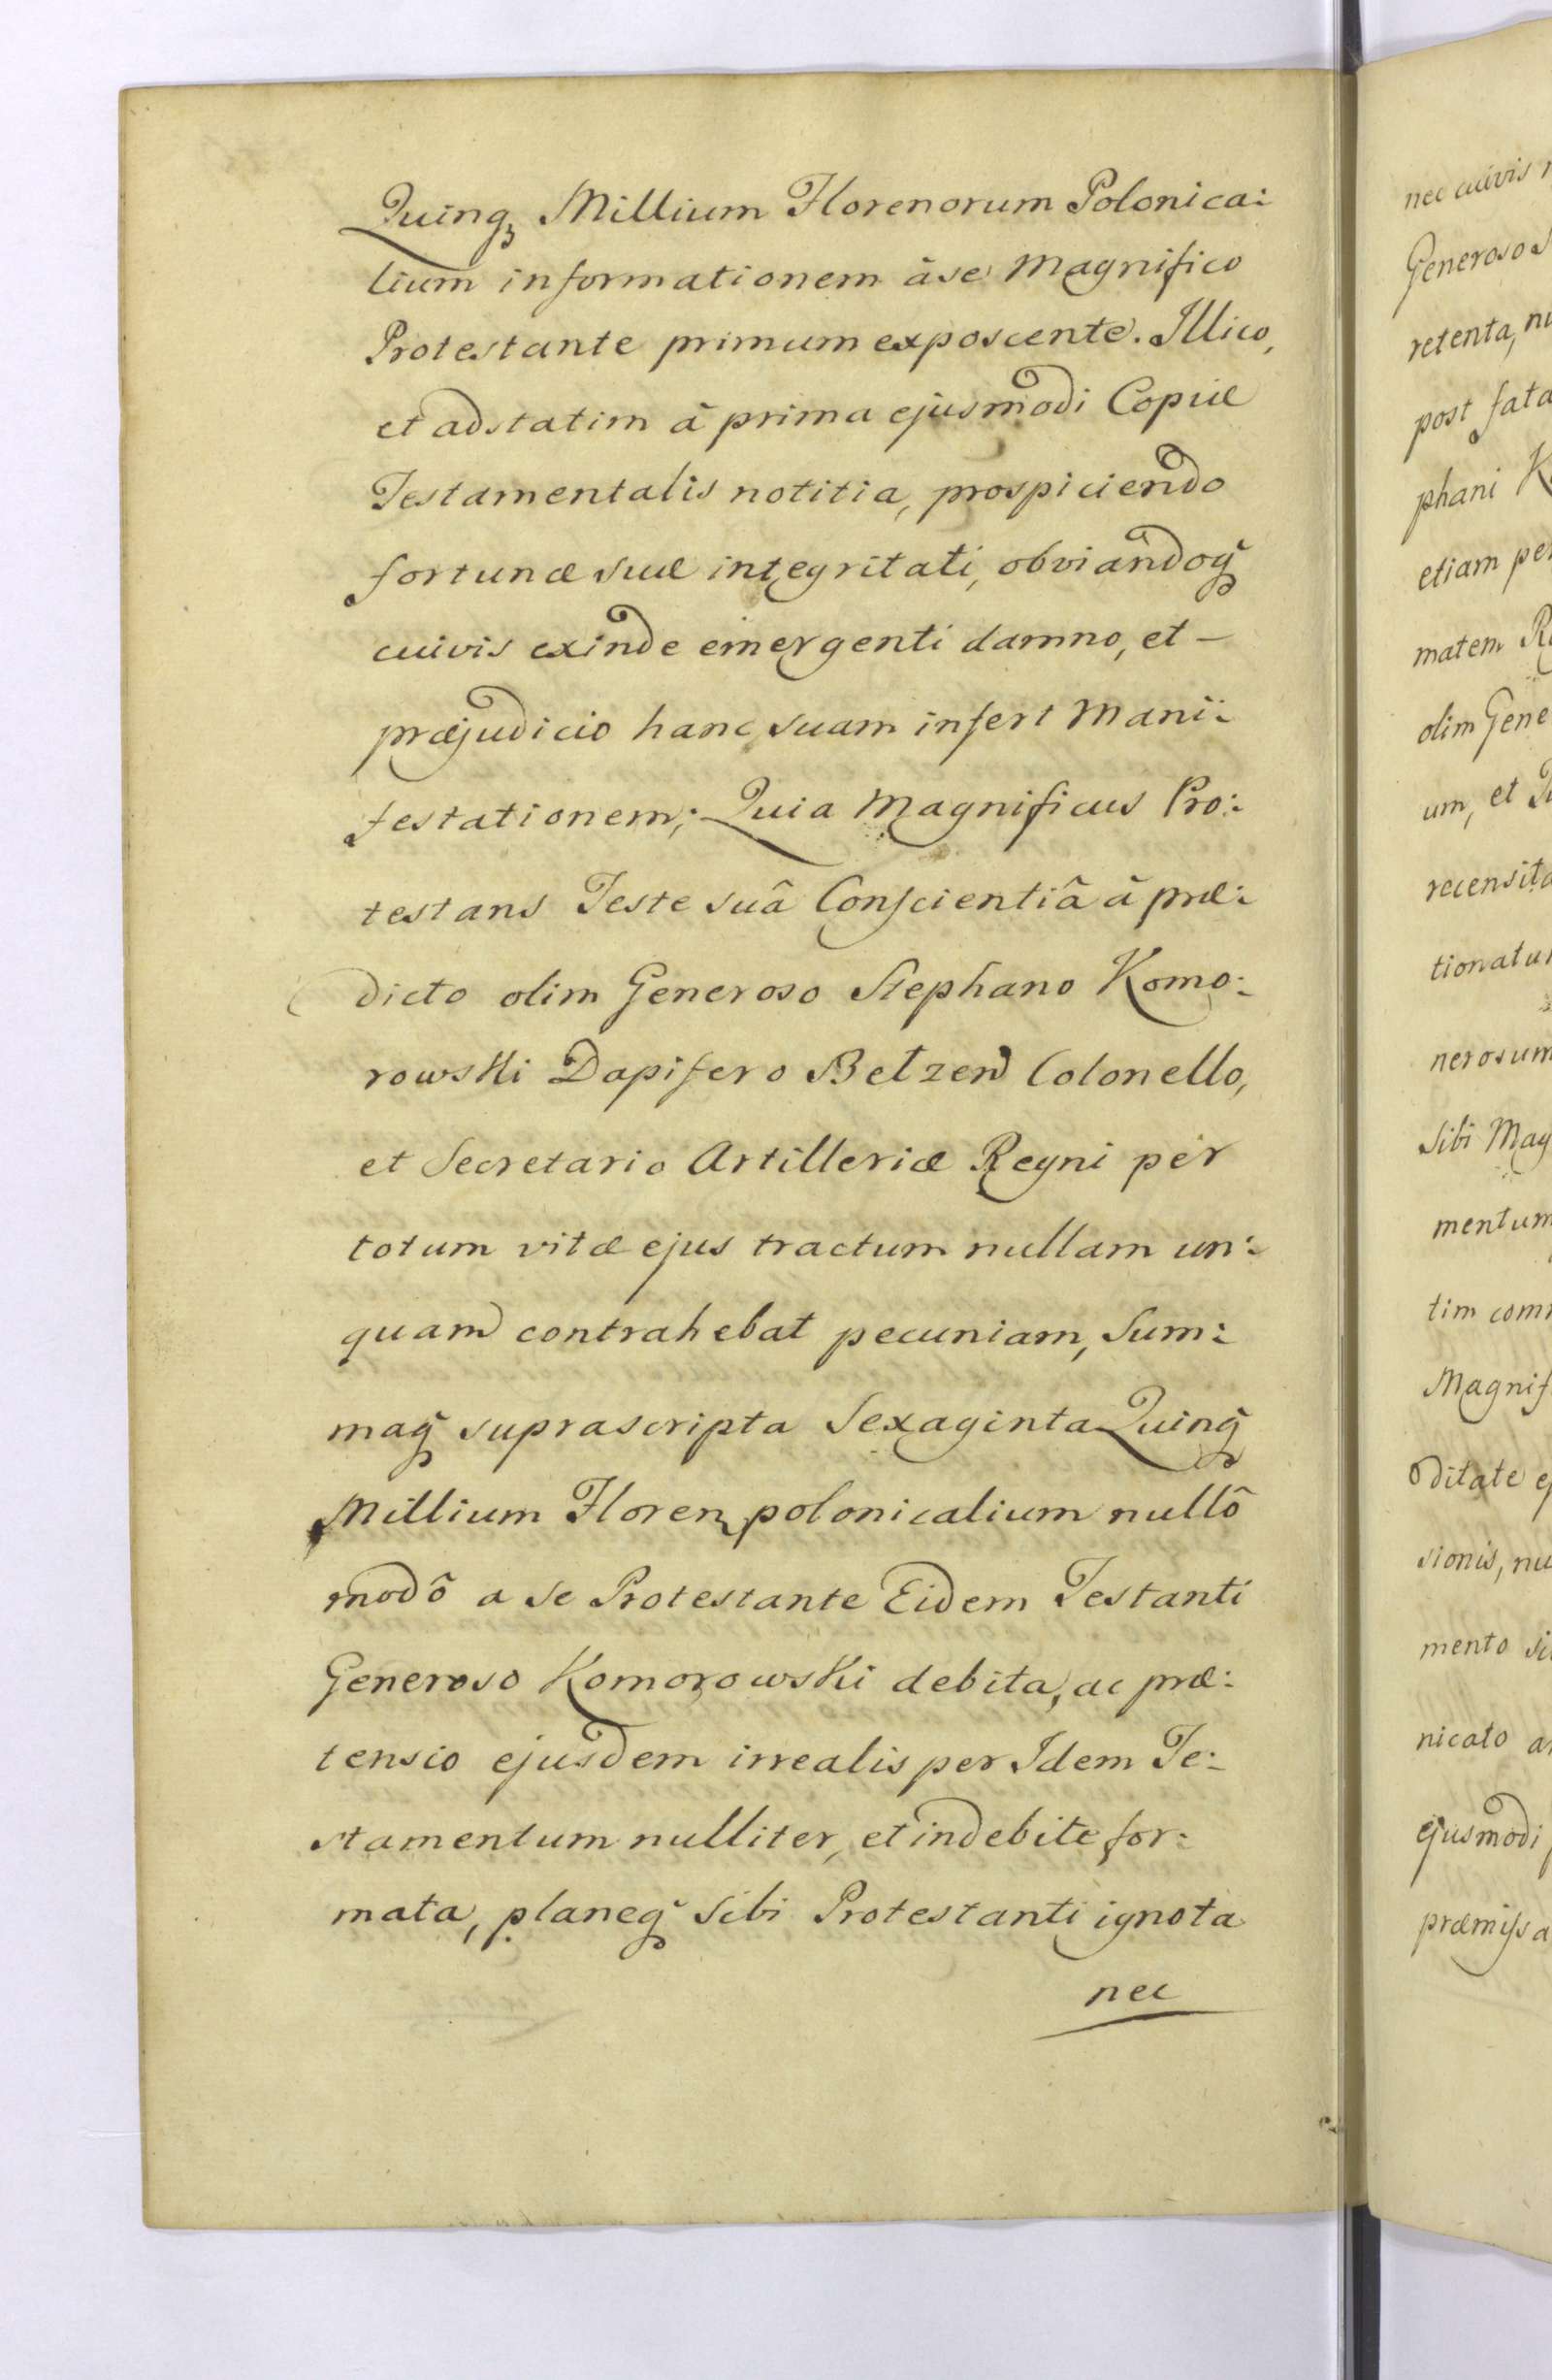 Quinq̨ Millium Florenorum Polonica:
lium informationem à se Magnifico
Protestante primum exposcente. Illico,
et adstatim à prima ejusmodi Copiæ
Testamentalis notitia, prospiciendo
fortunæ suæ integritati, obviandoq̃
cuivis exinde emergenti damno, et –
præjudicio hanc suam infert Mani:
festationem; Quia Magnificus Pro:
testans Teste suâ Conscientiâ à præ:
dicto olim Generoso Stephano Komo:
rowski Dapifero Betzen Colonello,
et Secretario Artilleriæ Regni per
totum vitæ ejus tractum nullam un:
quam contrahebat pecuniam, Sum:
maq̃ suprascripta Sexaginta Quinq̃
Millium Floren polonicalium nullô
modô a se Protestante Eidem Testanti
Generoso Komorowski debita, ac præ:
tensio ejusdem irrealis per Idem Te:
stamentum nulliter, et indebite for:
mata, planeq̃ sibi Protestanti ignota
nec
nec cuivis
Generoso
retenta,
post fata
phani
etiam
matem
olim Gene
um, et
recensita
tionatu
nerosum
Sibi Mag
mentum
tim com
Magnif
ditate
sionis, nu
mento
nicato
ejusmodi
præmissa